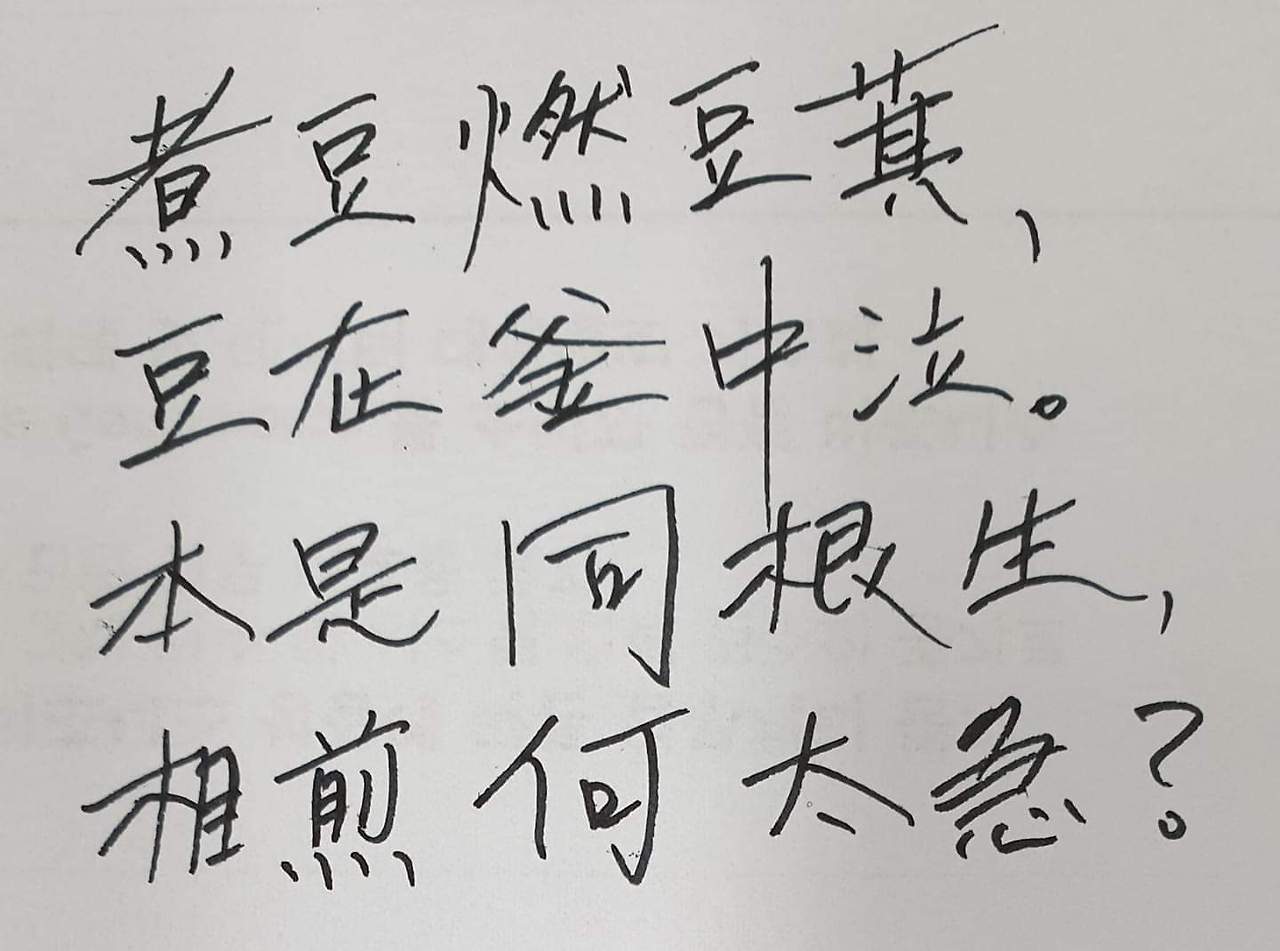 煮豆燃豆萁，
豆在釜中泣。
本是同根生，
相煎何太急？